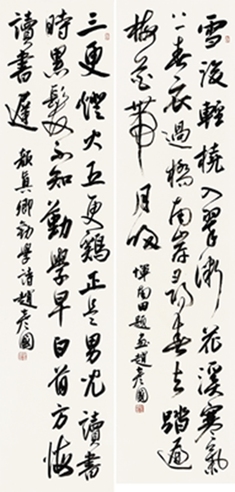 雪後輕橈入翠微花溪寒氣
上春衣過橋南岸尋春去踏遍
梅花帶月歸
惲南田題畫趙彥國
三更燈火五更鷄正是男兒讀書
時黑髮不知勤學早白首方悔
讀書遲
顏真卿勸學詩趙彥國